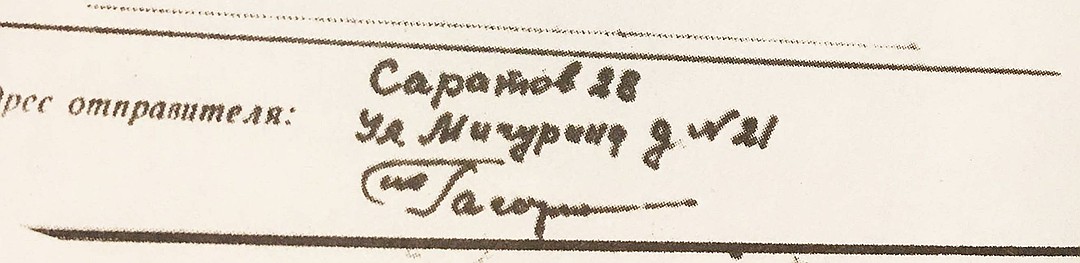 дрес отправителя:
Саратов 28
Ул Мичурина д №21